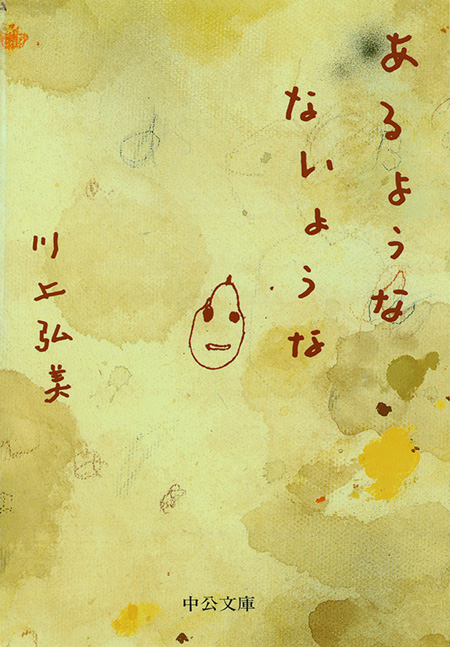 あるような
ないような
川上弘美
中公文庫